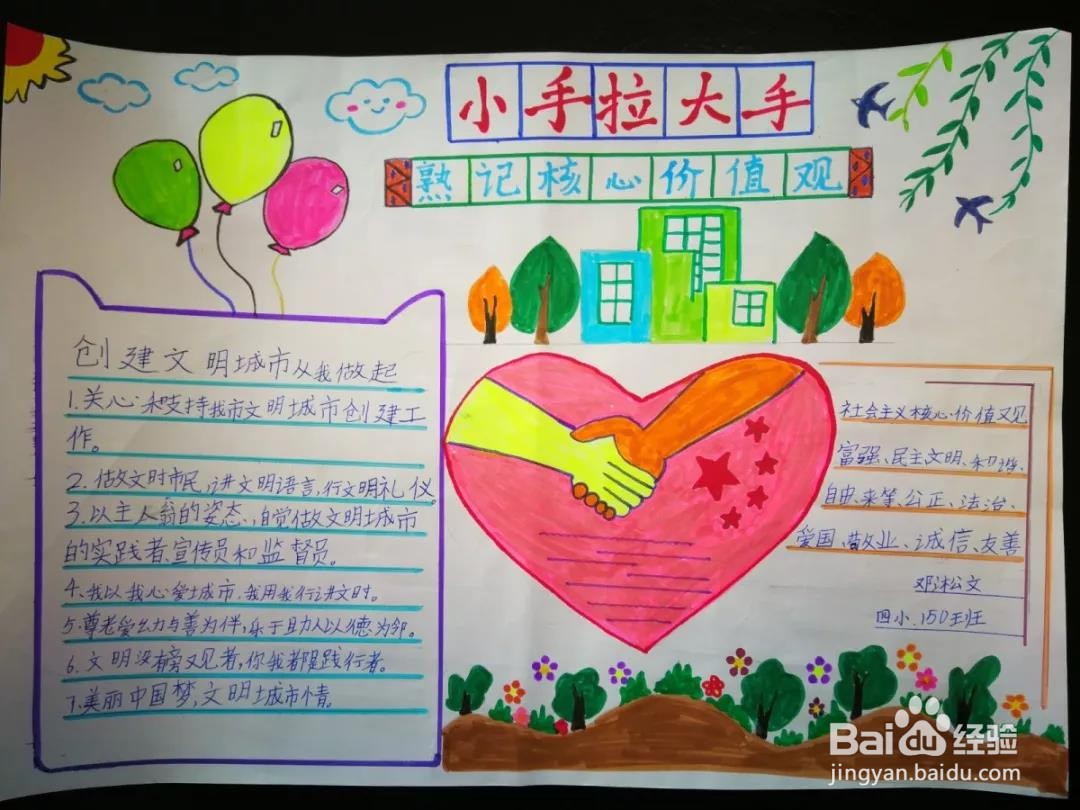 小手拉大手
熟记核心价值观
创建文明城市从我做起
1.关心和支持我市文明城市创建工
作。
2.做文时市民,讲文明语言,行文明礼仪。
3.以主人翁的姿态、自觉做文明城市
的实践者、宣传员和监督员。
4、我以我心爱城市,我用我行讲文时。
5.尊老爱幼与善为伴,乐于助人以德为邻。
6、文明没有旁观者,你我都是践行者。
7、美丽中国梦,文明城市情。
社会主义核心价值又见
富强、民主文明、和谐、
自由、来等、公正、法治、
爱国、敬业、诚信、友善
邓淞文
四小.150班
Baidu经验
jingyan.baidu.com